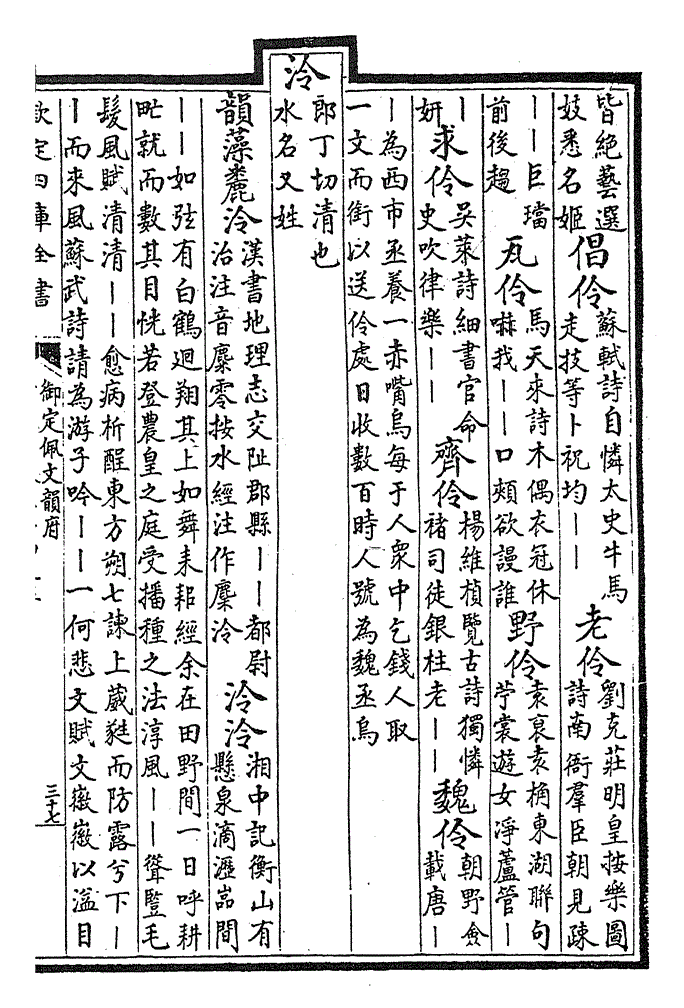 皆絶藝選
妓悉名姬
倡伶
蘇軾詩自憐太史牛馬
走技等卜祝均||
老伶
劉克莊明皇按樂圖
詩南衙羣臣朝見疎
||巨璫
前後趨
瓦伶
馬天來詩木偶衣冠休
嚇我||口頰欲謾誰
野伶
袁裒袁桷東湖聯句
苧裳遊女淨蘆管|
|
妍
求伶
吳萊詩細書官命
史吹律樂||
齊伶
楊維楨覽古詩獨憐
褚司徒銀柱老||
魏伶
朝野僉
載唐|
|為西市丞養一赤嘴烏每于人衆中乞錢人取
一文而銜以送伶處日收數百時人號為魏丞烏
泠
郎丁切清也
水名又姓
韻藻麊泠
漢書地理志交阯郡縣||都尉
治注音麋零按水經注作麋泠
泠泠
湘中記衡山有
懸泉滴瀝嵓間
||如弦有白鶴迴翔其上如舞耒耜經余在田野間一日呼耕
甿就而數其目恍若登農皇之庭受播種之法淳風||聳豎毛
髮風賦清清||愈病析酲東方朔七諫上葳蕤而防露兮下|
|而來風蘇武詩請為游子吟||一何悲文賦文徽徽以溢目
欽定四庫全書
御定佩文韻府
三十七